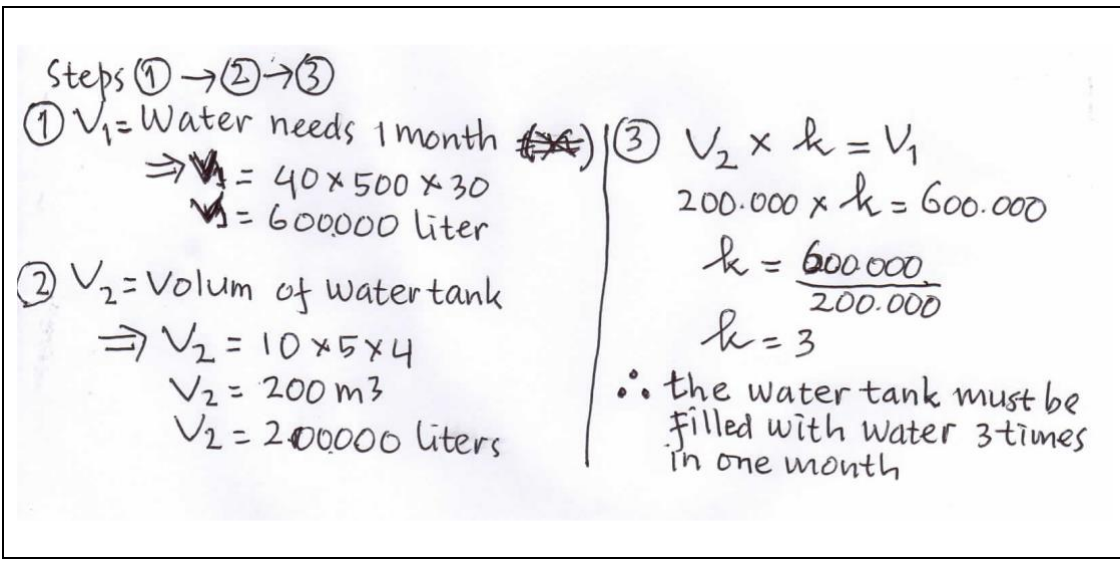 Steps ① → ② → ③
① V₁ = Water needs 1 month
⇒ V₁ = 40 × 500 × 30
V₁ = 600.000 liter
② V₂ = Volum of water tank
⇒ V₂ = 10 × 5 × 4
V₂ = 200 m3
V₂ = 200.000 liters
③ V₂ × k = V₁
200.000 × k = 600.000
k = 600.000
200.000
k = 3
∴ the water tank must be
filled with water 3 times
in one month